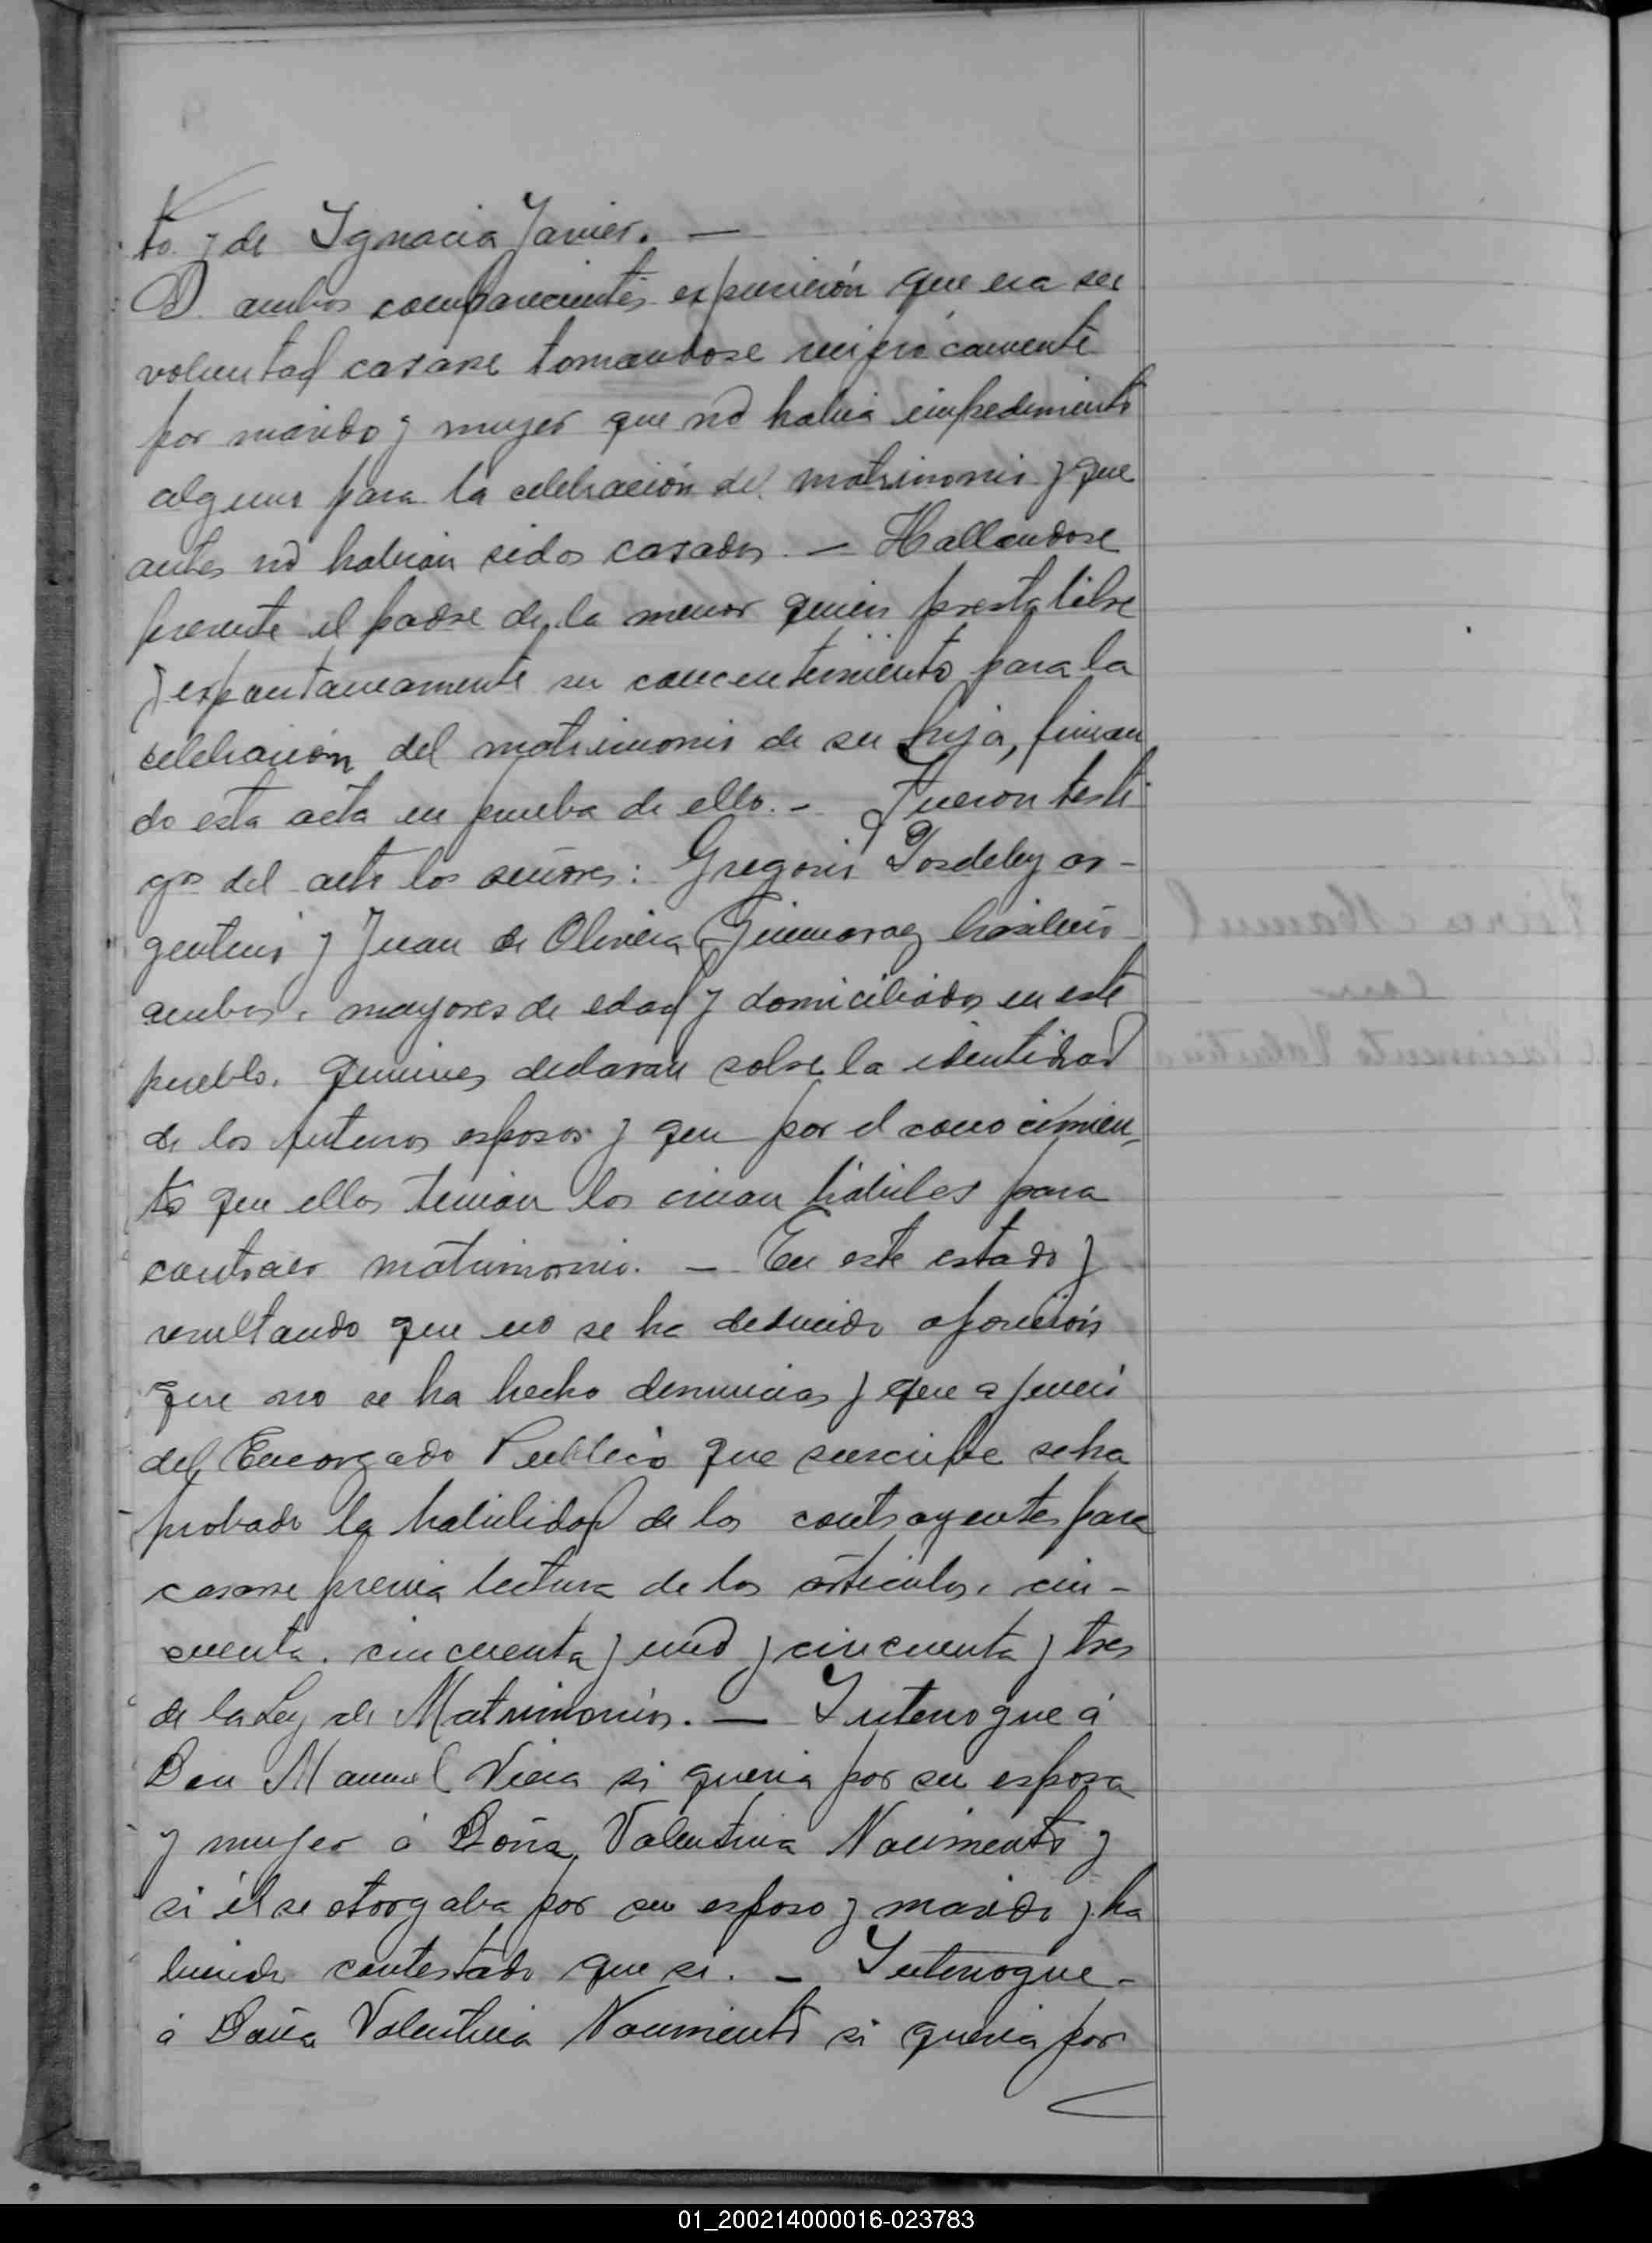 to. y de Ignacia Javier. —
D. ambos comparecientes expucieron que era su
voluntad casarse tomandose reciprocamente
por marido y mujer que no habia impedimento
alguno para la celebración del matrimonio y que
antes no habian sidos casados. — Hallandose
presente el padre de la menor quien presta libre
y espontaneamente su concentimiento para la
celebración del matrimonio de su hija, firman
do esta acta en prueba de ello. — Fueron testi
gos del acto los señores: Gregorio ar-
gentino y Juan de Oliveira brasilero
ambos, mayores de edad y domiciliados en este
pueblo. quienes declaran sobre la identidad
de los futuros esposos y que por el conocimien
to que ellos tenian los creian habiles para
contraer matrimonio. — En este estado y
resultando que no se ha deducido oposición
que no se ha hecho denuncias y que a juicio
del Encargado Publico que suscribe se ha
probado la habilidad de los contrayentes para
casarse previa lectura de los articulos, cin-
cuenta. cincuenta y uno y cincuenta y tres
de la Ley de Matrimonio. — Interrogue á
Don Manuel Vieira si queria por su esposa
y mujer á Doña Valentina Nacimento y
si él se otorgaba por su esposo y marido y ha
biendo contestado que si. — Interrogue-
á Doña Valentina Nacimiento si queria por
01_200214000016-023783